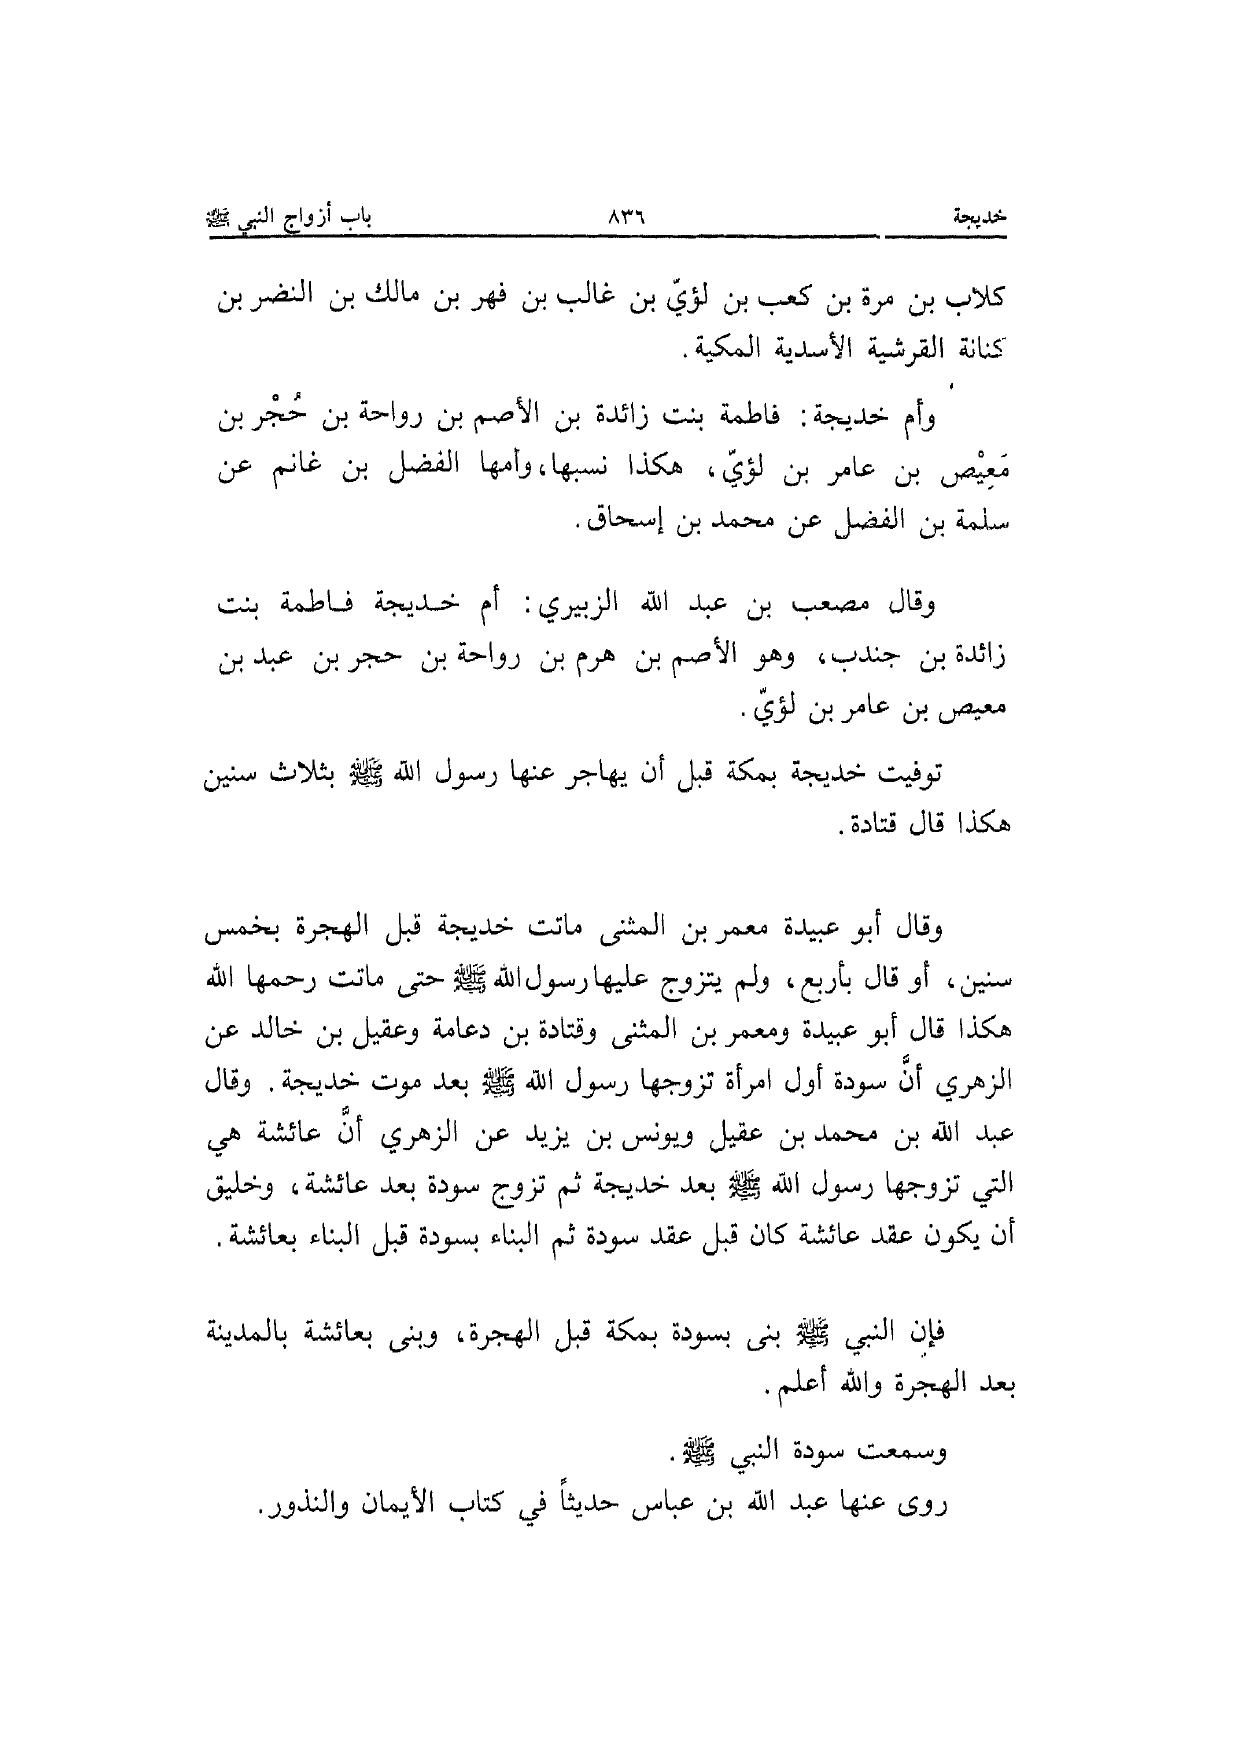 خديجة ٨٣٦ باب أزواج النبي ﷺ
كلاب بن مرة بن كعب بن لؤيّ بن غالب بن فهر بن مالك بن النضر بن
كنانة القرشية الأسدية المكية.
وأم خديجة: فاطمة بنت زائدة بن الأصم بن رواحة بن حُجْر بن
مَعِيْص بن عامر بن لؤيّ، هكذا نسبها، وأمها الفضل بن غانم عن
سلمة بن الفضل عن محمد بن إسحاق.
وقال مصعب بن عبد الله الزبيري: أم خديجة فاطمة بنت
زائدة بن جندب، وهو الأصم بن هرم بن رواحة بن حجر بن عبد بن
معيص بن عامر بن لؤيّ.
توفيت خديجة بمكة قبل أن يهاجر عنها رسول الله ﷺ بثلاث سنين
هكذا قال قتادة.
وقال أبو عبيدة معمر بن المثنى ماتت خديجة قبل الهجرة بخمس
سنين، أو قال بأربع، ولم يتزوج عليها رسول الله ﷺ حتى ماتت رحمها الله
هكذا قال أبو عبيدة ومعمر بن المثنى وقتادة بن دعامة وعقيل بن خالد عن
الزهري أنَّ سودة أول امرأة تزوجها رسول الله ﷺ بعد موت خديجة. وقال
عبد الله بن محمد بن عقيل ويونس بن يزيد عن الزهري أنَّ عائشة هي
التي تزوجها رسول الله ﷺ بعد خديجة ثم تزوج سودة بعد عائشة، وخليق
أن يكون عقد عائشة كان قبل عقد سودة ثم البناء بسودة قبل البناء بعائشة.
فإن النبي ﷺ بنى بسودة بمكة قبل الهجرة، وبنى بعائشة بالمدينة
بعد الهجرة والله أعلم.
وسمعت سودة النبي ﷺ.
روى عنها عبد الله بن عباس حديثاً في كتاب الأيمان والنذور.